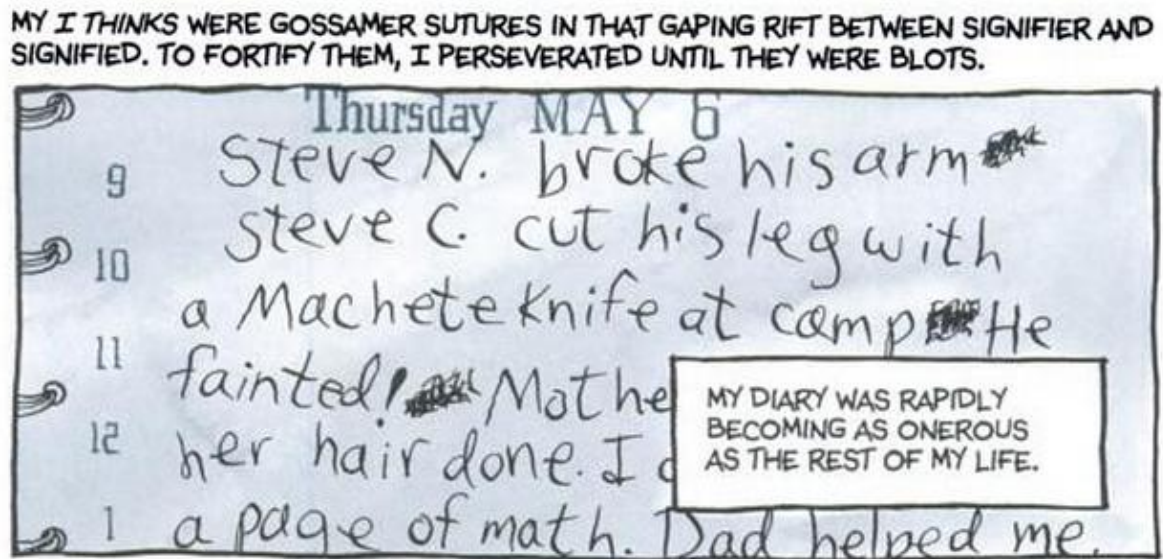 MY I THINKS WERE GOSSAMER SUTURES IN THAT GAPING RIFT BETWEEN SIGNIFIER AND
SIGNIFIED. TO FORTIFY THEM, I PERSEVERATED UNTIL THEY WERE BLOTS.
Thursday MAY 6
9
Steve N. broke his arm
10
Steve C. cut his leg with
a Machete Knife at camp He
11
fainted! Mothe
12
her hair done. I
1
a page of math. Dad helped me.
MY DIARY WAS RAPIDLY
BECOMING AS ONEROUS
AS THE REST OF MY LIFE.